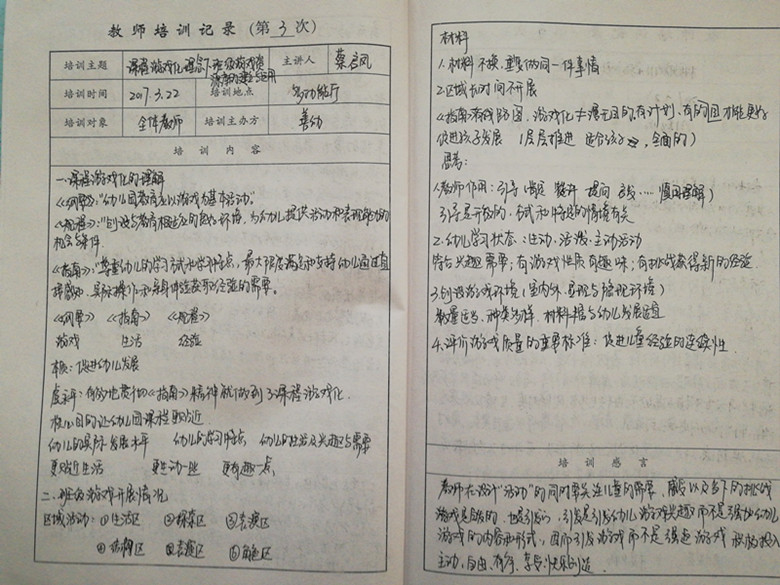 教师培训记录（第 3 次）
培训主题 课程游戏化理念下班级游戏资源的建设与运用 主讲人 蔡启凤
培训时间 2017.3.22 培训地点 多功能厅
培训对象 全体教师 培训主办方 善幼
培 训 内 容
一、课程游戏化的理解
《纲要》："幼儿园教育应以游戏为基本活动。
《规程》："创设与教育相适应的良好环境，为幼儿提供活动和表现能力的
机会与条件
《指南》："尊重幼儿的学习方式和学习特点，最大限度满足和支持幼儿通过直
接感知，实际操作和亲身体验获取经验的需要。
《纲要》 《指南》 《规程》
游戏 生活 经验
本质：促进幼儿发展
虞永平：有效地贯彻《指南》精神就做到了课程游戏化
核心目的让幼儿园课程更贴近
幼儿的实际发展水平 幼儿的学习特点 幼儿的生活及兴趣与需要
更贴近生活 更生动一些 更有趣一点
二、班级游戏开展情况
区域活动：①生活区 ②探索区 ③表演区
④结构区 ⑤表演区 ⑥角色区
材料
1.材料不换，重复做同一件事情
2.区域长时间不开展
《指南》游戏防图，游戏化≠漫无目的，有计划、有的因才能更好
促进孩子发展 （层层推进 适合孩子，全面的）
思考：
1.教师作用：引导（提问 慎用理解）
引导是开放的，方式和特定的情境有关
2.幼儿学习状态：生动、活泼、主动活动
符合兴趣需要；有游戏性质有趣味；有挑战获得新的经验
3.创设游戏环境（室内外、显现与隐现环境）
数量适当、种类多样、材料损与幼儿发展适宜
4.评价游戏质量的重要标准：促进儿童经验的连续性
培 训 感 言
教师在设计"活动"的同时要关注儿童的需要，以及当下的挑战
游戏是自然的，也是引发的，引发是引发幼儿游戏兴趣，而不是强加幼儿
游戏的内容和形式，因而引发游戏而不是强迫游戏 积极投入
主动、自由、有序、享受快乐创造。